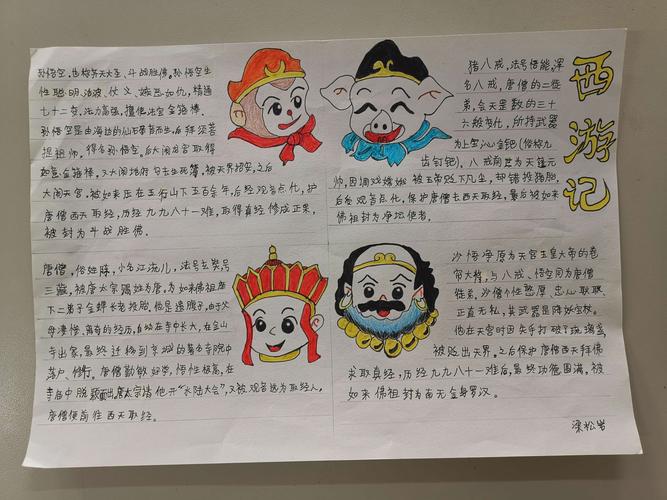 孙悟空，也称齐天大圣、斗战胜佛。孙悟空生
性聪明、活泼、仗义、嫉恶如仇，精通
七十二变，法力高强，擅使法宝金箍棒。
孙悟空是由海边的仙石孕育而生，后拜须菩
提祖师，得名孙悟空。后大闹龙宫取得
如意金箍棒，又大闹地府勾去生死簿，被天界招安，之后
大闹天宫，被如来压在五行山下五百余年，后经观音点化，护
唐僧西天取经，历经九九八十一难，取得真经修成正果，
被封为斗战胜佛。
猪八戒，法号悟能，浑
名八戒，唐僧的二徒
弟，会天罡数的三十
六般变化，所持武器
为上宝沁金钯（俗称九
齿钉钯），八戒前世为天蓬元
帅，因调戏嫦娥被玉帝贬下凡尘，却错投猪胎，
后经观音点化，保护唐僧去西天取经，最后被如来
佛祖封为净坛使者。
西游记
唐僧，俗姓陈，小名江流儿，法号玄奘，号
三藏，被唐太宗赐姓为唐，为如来佛祖座
下二弟子金蝉长老投胎。他是遗腹子，由于父
母凄惨、离奇的经历，自幼在寺中长大，在金山
寺出家，最终迁移到京城的著名寺院中
落户、修行。唐僧勤敏好学，悟性极高，在
寺庙中脱颖而出。唐太宗请他开“水陆大会”，又被观音选为取经人，
唐僧便前往西天取经。
沙悟净原为天宫玉皇大帝的卷
帘大将，与八戒、悟空同为唐僧
徒弟，沙僧个性憨厚、忠心耿耿、
正直无私，其武器是降妖宝杖。
他在天宫时因失手打破了琉璃盏，
被贬出天界。之后保护唐僧西天拜佛
求取真经，历经九九八十一难后，最终功德圆满，被
如来佛祖封为南无金身罗汉。
梁松岩